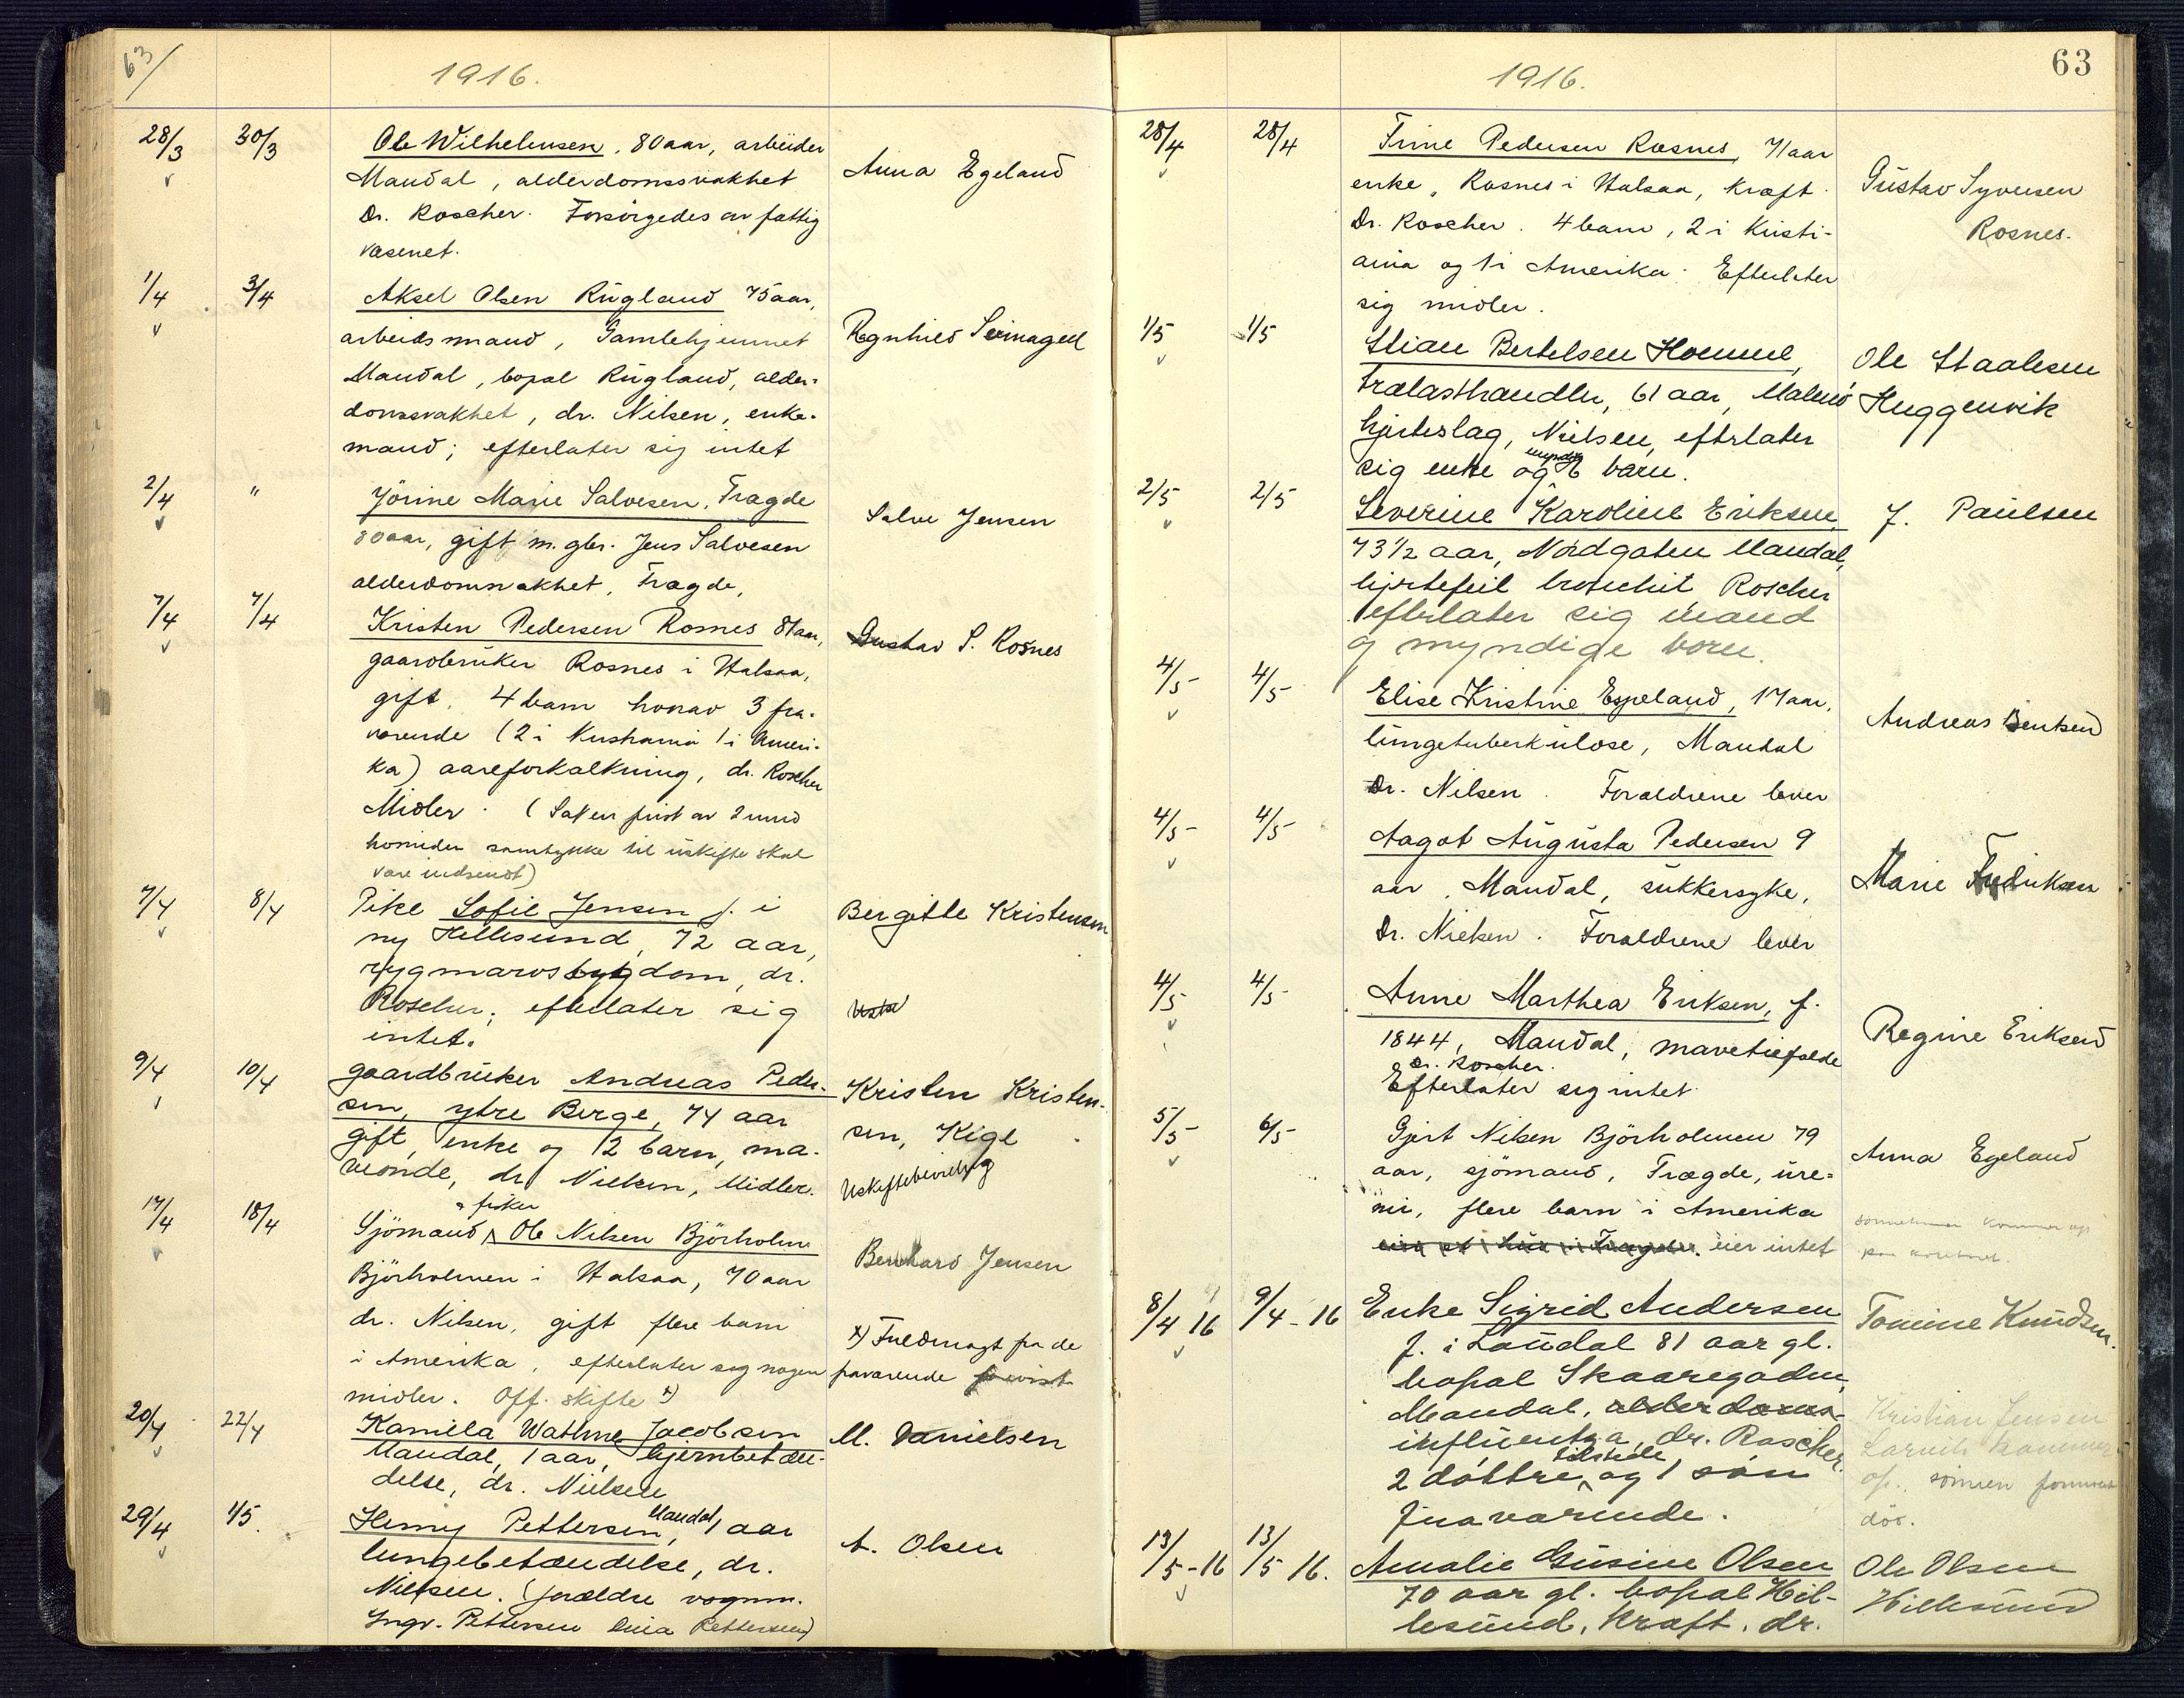 63/
1916.
28/3 30/3 Ole Wilhelmsen, 80 aar, arbeider
Mandal, alderdomssvakhet
Dr. Roscher. Forsörgedes av fattig
væsenet.
Anna Egeland
1/4 3/4 Aksel Olsen Rugland 75 aar,
arbeidsmand, Gamlehjemmet
Mandal, bopæl Rugland, alder-
domssvakhet, dr. Nilsen, enke-
mand; efterlater sig intet
2/4 " Jörine Marie Salvesen, Tragde
80 aar, gift m. gbr. Jens Salvesen
alderdomsvakhet, Tragde,
Salve Jensen
7/4 7/4 Kristen Pedersen Rosnes 81 aar,
gaardbruker Rosnes i Halsaa,
gift. 4 barn hvorav 3 fra-
værende (2 i Kristiania 1 i Ameri-
ka) aareforkalkning, dr. Roscher
Midler. (Sat en frist av 2 mnd
hvorinden samtykke til uskifte skal
være indsendt)
Gustav S. Rosnes
7/4 8/4 Pike Sofie Jensen f. i
ny Hellesund, 72 aar,
rygmarvssygdom, dr.
Roscher; efterlater sig
intet.
Bergitte Kristensen
9/4 10/4 gaardbruker Andreas Peder-
sen, ytre Berge, 74 aar
gift, enke og 12 barn, ma-
veonde, dr Nielsen, Midler.
Kristen Kristen-
sen, Kige
Uskiftebevilling
17/4 18/4 Sjömand & fisker Ole Nilsen Björholm
Björholmen i Halsaa, 70 aar
dr. Nilsen, gift flere barn
i Amerika, efterlater sig nogen
midler. Off. skifte x)
Bernhard Jensen
x) Fuldmagt fra de
fraværende
20/4 22/4 Kamilla Wathne Jacobsen
Mandal, 1 aar, hjernebetæn-
delse, dr. Nielsen
M. Danielsen
29/4 1/5. Henny Pettersen, Mandal, 1 aar
lungebetændelse, dr.
Nielsen. (forældre vognm.
Ingv. Pettersen Lina Pettersen)
A. Olsen
63
1916.
28/4 28/4 Trine Pedersen Rosnes, 71 aar
enke, Rosnes i Halsaa, Kræft
Dr. Roscher. 4 barn, 2 i Kristi-
ania og 1 i Amerika. Efterlater
sig midler.
Gustav Syversen
Rosnes.
1/5 1/5 Stian Bertelsen Homme,
trælasthandler, 61 aar, Malmö
hjerteslag, Nielsen, efterlater
sig enke og myndige barn.
Ole Staalesen
Huggenvik
2/5 2/5 Severine Karoline Eriksen
73 1/2 aar, Nordgaten Mandal,
hjertefeil bronchit, Roscher
efterlater sig mand
og myndige born.
J. Paulsen
4/5 4/5 Elise Kristine Espeland, 17 aar,
lungetuberkulose, Mandal
Dr. Nilsen. Forældrene lever
Andreas Bentsen
4/5 4/5 Aagot Augusta Pedersen 9
aar, Mandal, sukkersyke,
Dr. Nielsen. Forældrene lever
Marie Fredriksen
4/5 4/5 Anne Marthea Eriksen, f.
1844, Mandal, mavetilfælde
dr. Roscher.
Efterlater sig intet
Regine Eriksen
5/5 6/5 Gjert Nilsen Björholmen 79
aar, sjömand, Tragde, ure-
mi, flere barn i Amerika
eier et hus i Tragde. eier intet
Anna Egeland
8/4 16 9/4-16 Enke Sigrid Andersen
f. i Laudal 81 aar gl.
bopæl Skaaregaden,
Mandal, alderdoms-
influentza, dr. Roscher.
2 döttre tilstede og 1 sön
fraværende.
Tomine Knudsen.
Kristian Jensen
Larvik kommer
op. sönnen
död.
13/5-16 13/5 16. Amalie Gusine Olsen
70 aar gl. bopæl Hil-
lesund, Kræft. dr.
Ole Olsen
Hillesund